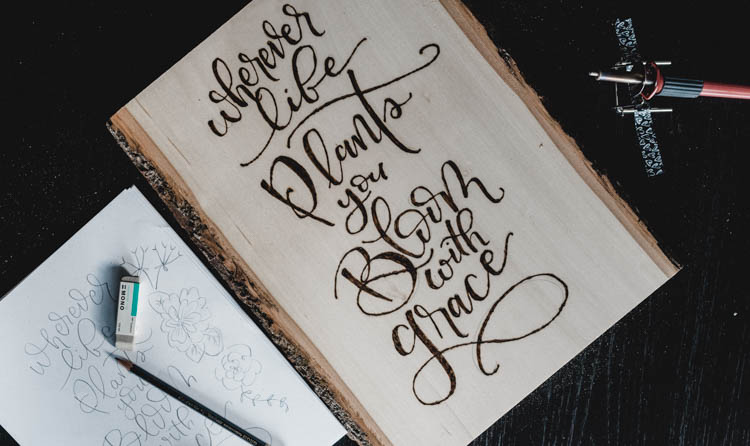 wherever
life
Plants
you
Bloom
with
grace
MONO
wherever
life
Plants
you
Bloom
with